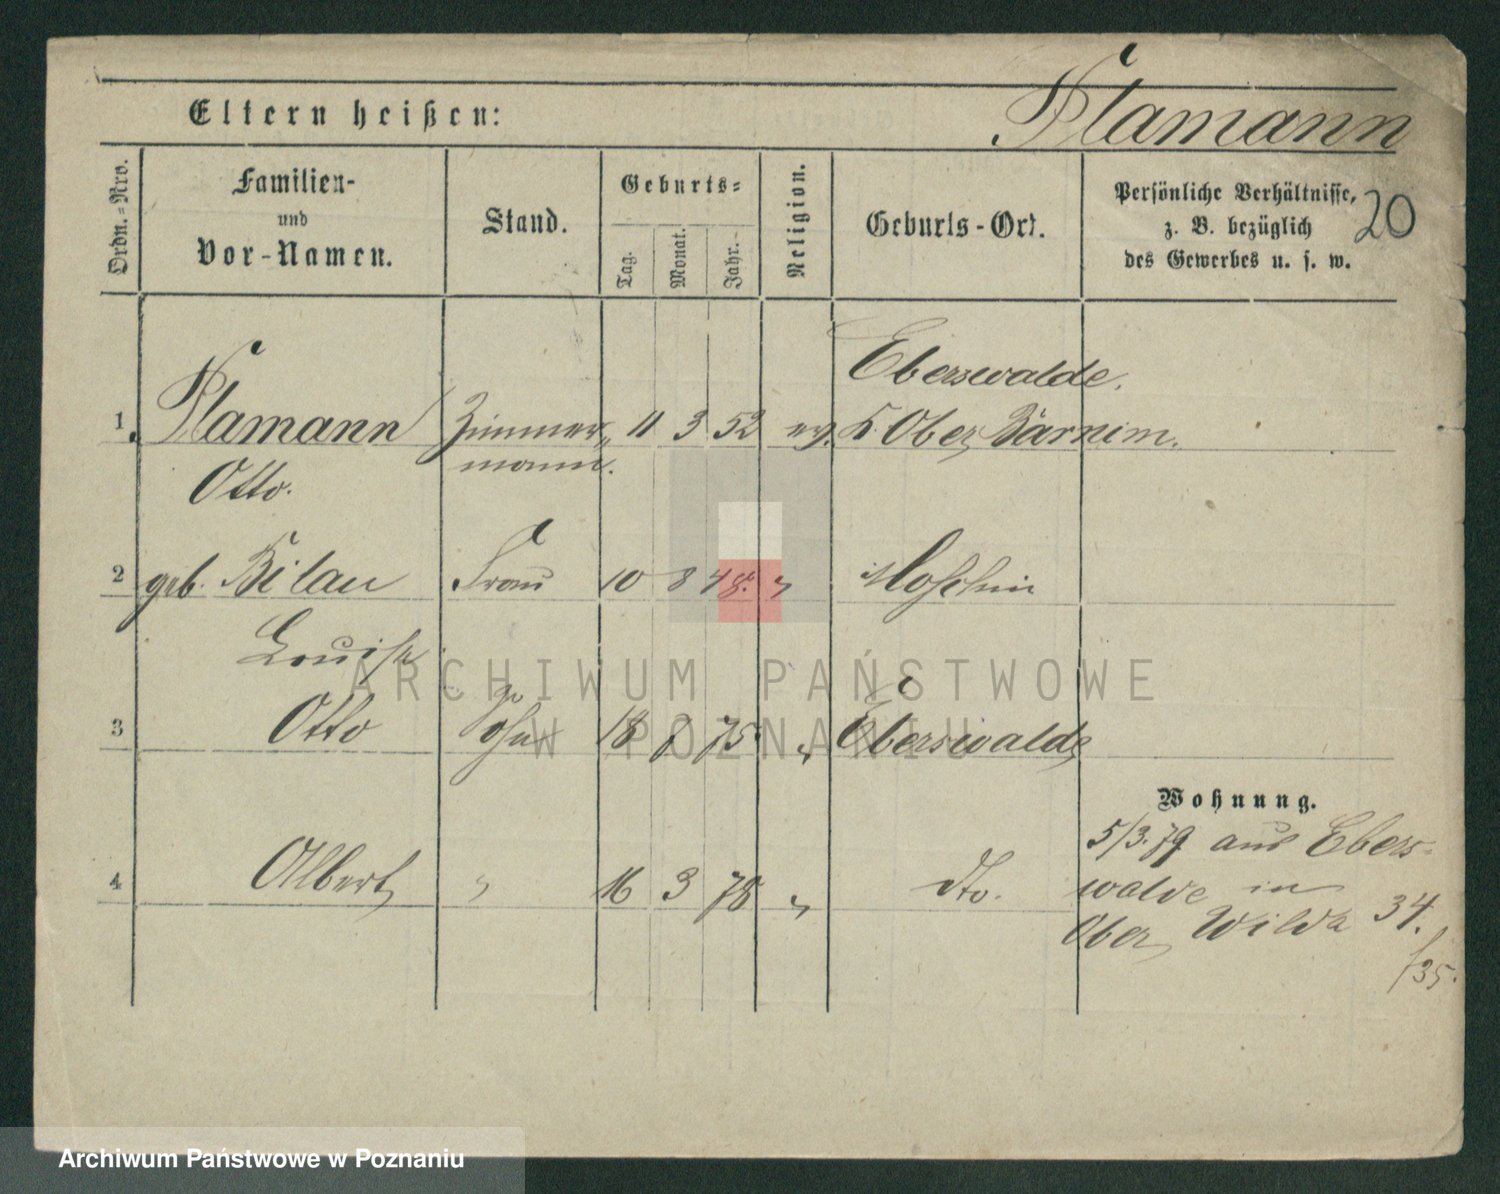 Eltern heißen:
Plamann
Ordn.-Nro.
Familien-
und
Vor-Namen.
Stand.
Geburts-
Tag.
Monat.
Jahr.
Religion.
Geburts-Ort.
Persönliche Verhältnisse,
z. B. bezüglich
des Gewerbes u. s. w.
20
Eberswalde.
1. Plamann Zimmer- 11 3 52 ev. K. Ober Barnim.
Otto. mann.
2 geb. Bilau Frau 10 8 48. " Moschin
Louise
3 Otto Sohn 18 8 75. " Eberswalde
Wohnung.
5/3.79 aus Ebers-
4 Albert " 16 3 78 " dto. walde in
Ober Wilda 34.
/35.
ARCHIWUM PAŃSTWOWE
W POZNANIU
Archiwum Państwowe w Poznaniu